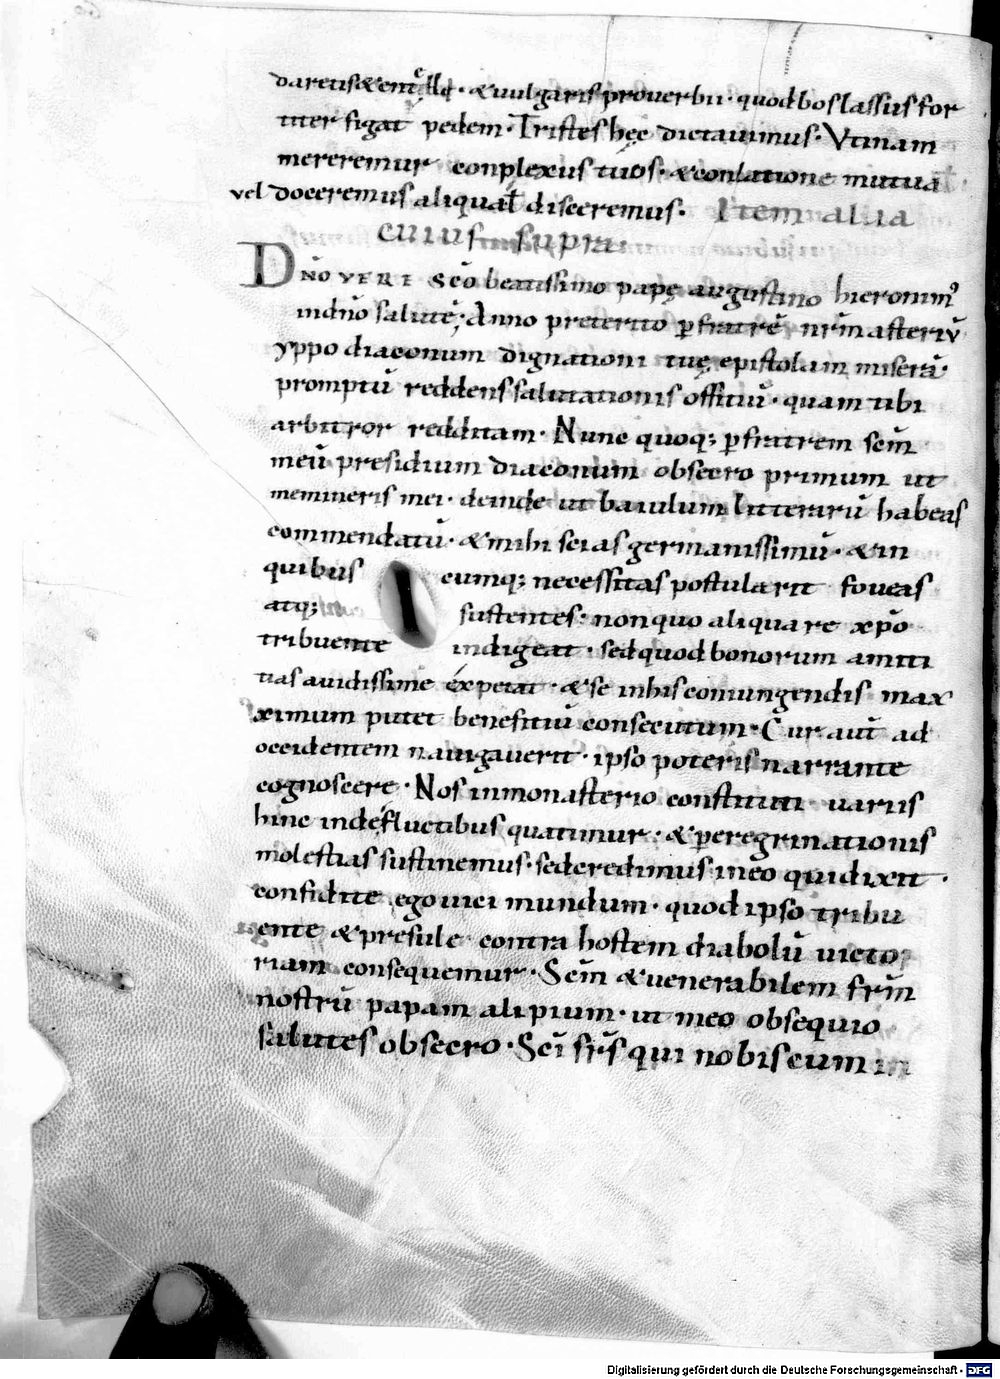 daretis & entellū · & uulgaris prouerbii · quod bos lassus for
titer figat pedem · Tristes hęc dictauimus · Vtinam
mereremur conplexus tuos · & conlatione mutua
vel doceremus aliqua vł disceremus · Item alia
cuius supra
DNO VERE Sc̄o beatissimo papę augustino hieronim᾽
in dn̄o salutē; Anno preterito p̱ fratrē nr̄m asteriū
yppodiaconum dignationi tuę epistolam miserā·
promptū reddens salutationis offitiū · quam tibi
arbitror redditam · Nunc quoq; p̱ fratrem sc̄m
meū presidium diaconum obsecro primum ut
memineris mei · deinde ut baiulum litterarū habeas
commendatū · & mihi scias germanissimū · & in
quibus cumq; necessitas postularit foueas
atq; sustentes · non quo aliqua re xp̄o
tribuente indigeat · sed quod bonorum amiti
tias auidissime expetat · & se in his coniungendis max
ximum putet benefitiū consecutum · Cur aut̄ ad
occidentem nauigauerit · ipso poteris narrante
cognoscere · Nos in monasterio constituti uariis
hinc inde fluctibus quatimur · & p̱egrinationis
molestias sustinemus · sed credimus in eo qui dixit ·
confidite ego uici mundum · quod ipso tribu
ente & presule contra hostem diabolū uicto
riam consequemur · Sc̄m & uenerabilem fr̄m
nostrū papam alipium · ut meo obsequio
salutes obsecro · Sc̄i fr̄s qui nobiscum in
Digitalisierung gefördert durch die Deutsche Forschungsgemeinschaft - DFG